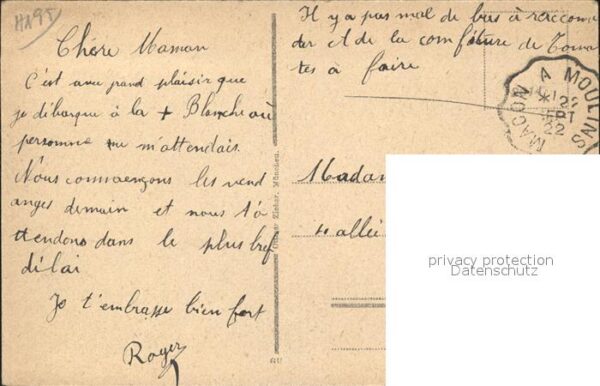 H195
Chère Maman
C'est avec grand plaisir que
je débarque à la + Blanche où
personne ne m'attendais.
Nous commençons les vend
anges demain et nous t'a
ttendons dans le plus bref
délai
Je t'embrasse bien fort
Roger
Il y a pas mal de bas à raccomo
der et de la confiture de Toma
tes à faire
MACON A MOULINS
22
SEPT
22
Ottmar Zieher, München.
Madam
10 allée
privacy protection
Datenschutz